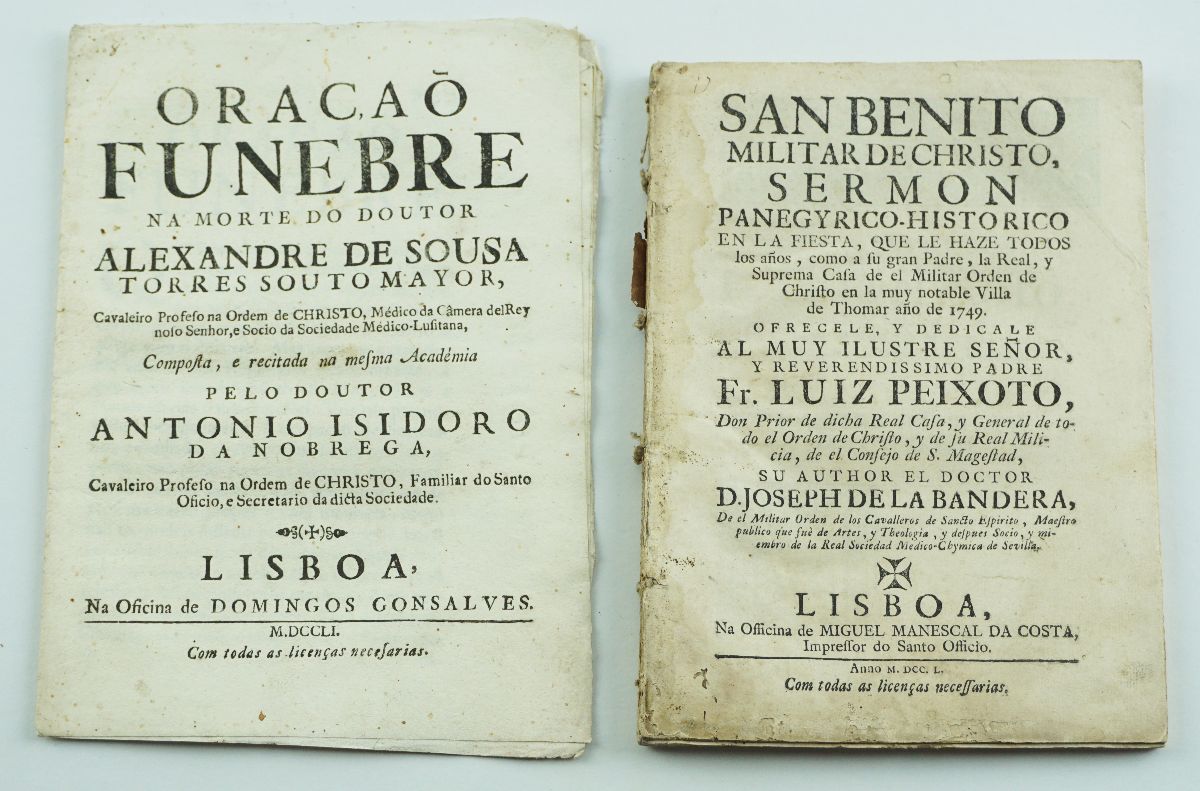 ORAC,AÕ
FUNEBRE
NA MORTE DO DOUTOR
ALEXANDRE DE SOUSA
TORRES SOUTO MAYOR,
Cavaleiro Profeſo na Ordem de CHRISTO, Médico da Câmera delRey
noſo Senhor, e Socio da Sociedade Médico-Luſitana,
Compoſta, e recitada na meſma Académia
PELO DOUTOR
ANTONIO ISIDORO
DA NOBREGA,
Cavaleiro Profeſo na Ordem de CHRISTO, Familiar do Santo
Oficio, e Secretario da dicta Sociedade.
LISBOA,
Na Oficina de DOMINGOS GONSALVES.
M.DCCLI.
Com todas as licenças neceſarias.
SAN BENITO
MILITAR DE CHRISTO,
SERMON
PANEGYRICO-HISTORICO
EN LA FIESTA, QUE LE HAZE TODOS
los años, como a ſu gran Padre, la Real, y
Suprema Caſa de el Militar Orden de
Chriſto en la muy notable Villa
de Thomar año de 1749.
OFRECELE, Y DEDICALE
AL MUY ILUSTRE SEÑOR,
Y REVERENDISSIMO PADRE
Fr. LUIZ PEIXOTO,
Don Prior de dicha Real Caſa, y General de to-
do el Orden de Chriſto, y de ſu Real Mili-
cia, de el Conſejo de S. Mageſtad,
SU AUTHOR EL DOCTOR
D. JOSEPH DE LA BANDERA,
De el Militar Orden de los Cavalleros de Sancto Eſpirito, Maeſtro
publico que fuè de Artes, y Theologia, y deſpues Socio, y mi-
embro de la Real Sociedad Medico-Chymica de Sevilla.
LISBOA,
Na Officina de MIGUEL MANESCAL DA COSTA,
Impreſſor do Santo Officio.
Anno M. DCC. L.
Com todas as licenças neceſſarias.